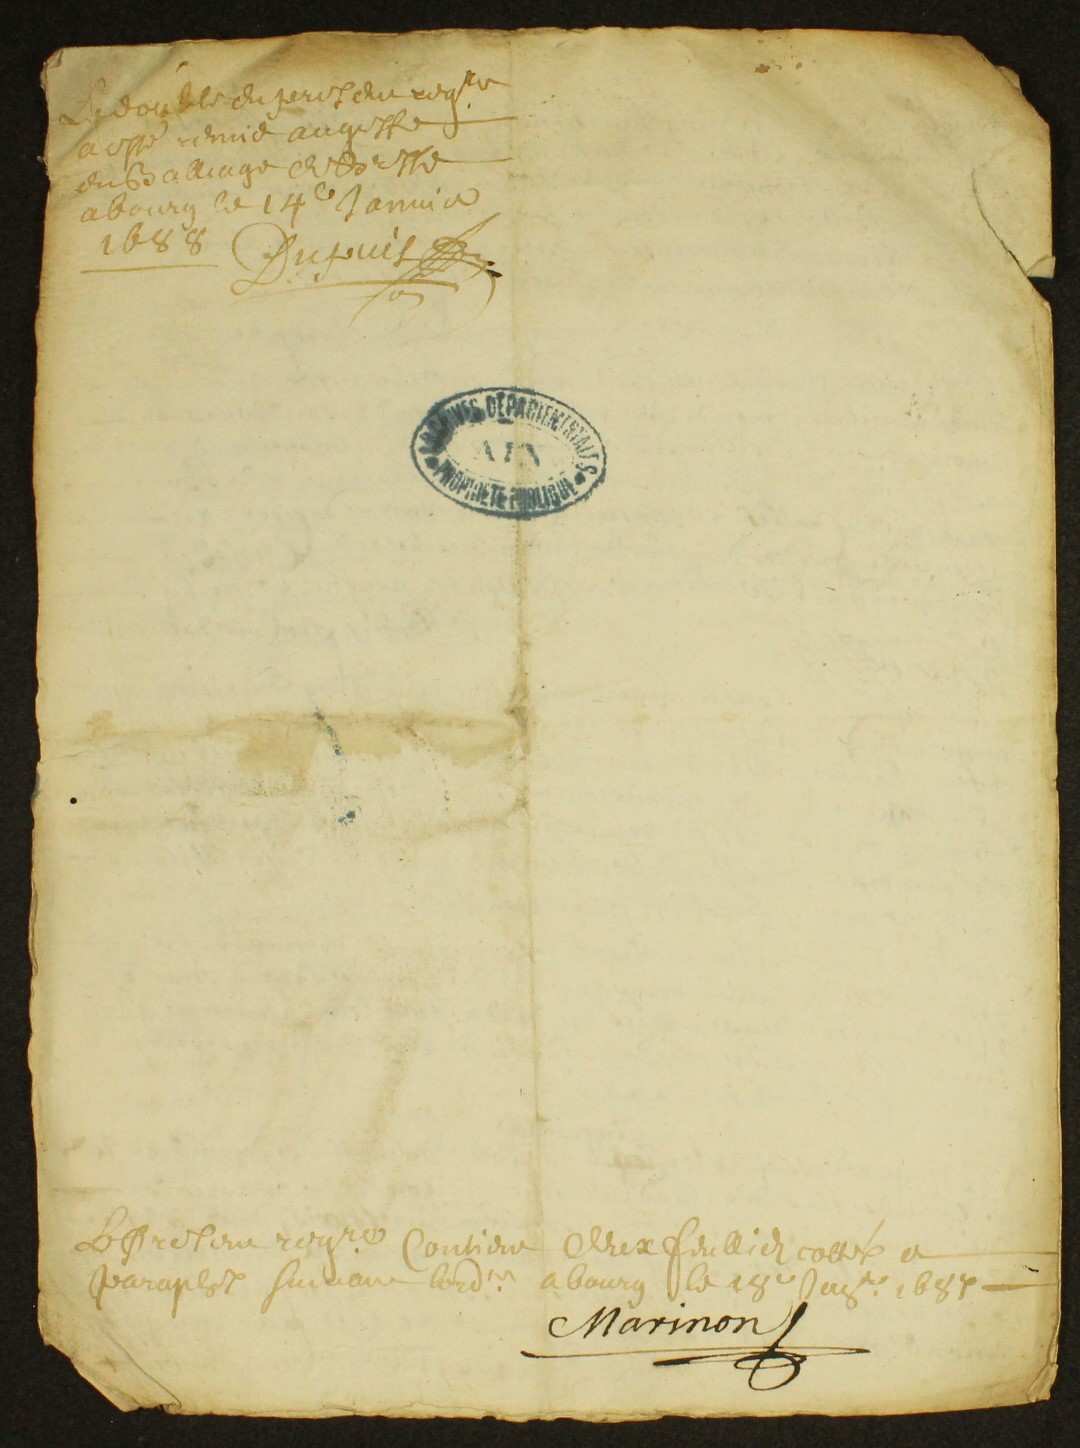 Le double du pers^t. du reg^re
a esté remis au greffe
du Balliage de Bresse
a bourg le 14^e Janvier
1688 Dupuis
ARCHIVES DÉPARTEMENTALES
AIN
PROPRIÉTÉ PUBLIQUE
Le pret registre Contient deux feullietz cottés e
paraphés suivant lord^ce a bourg le 18^e 1687
Marinon